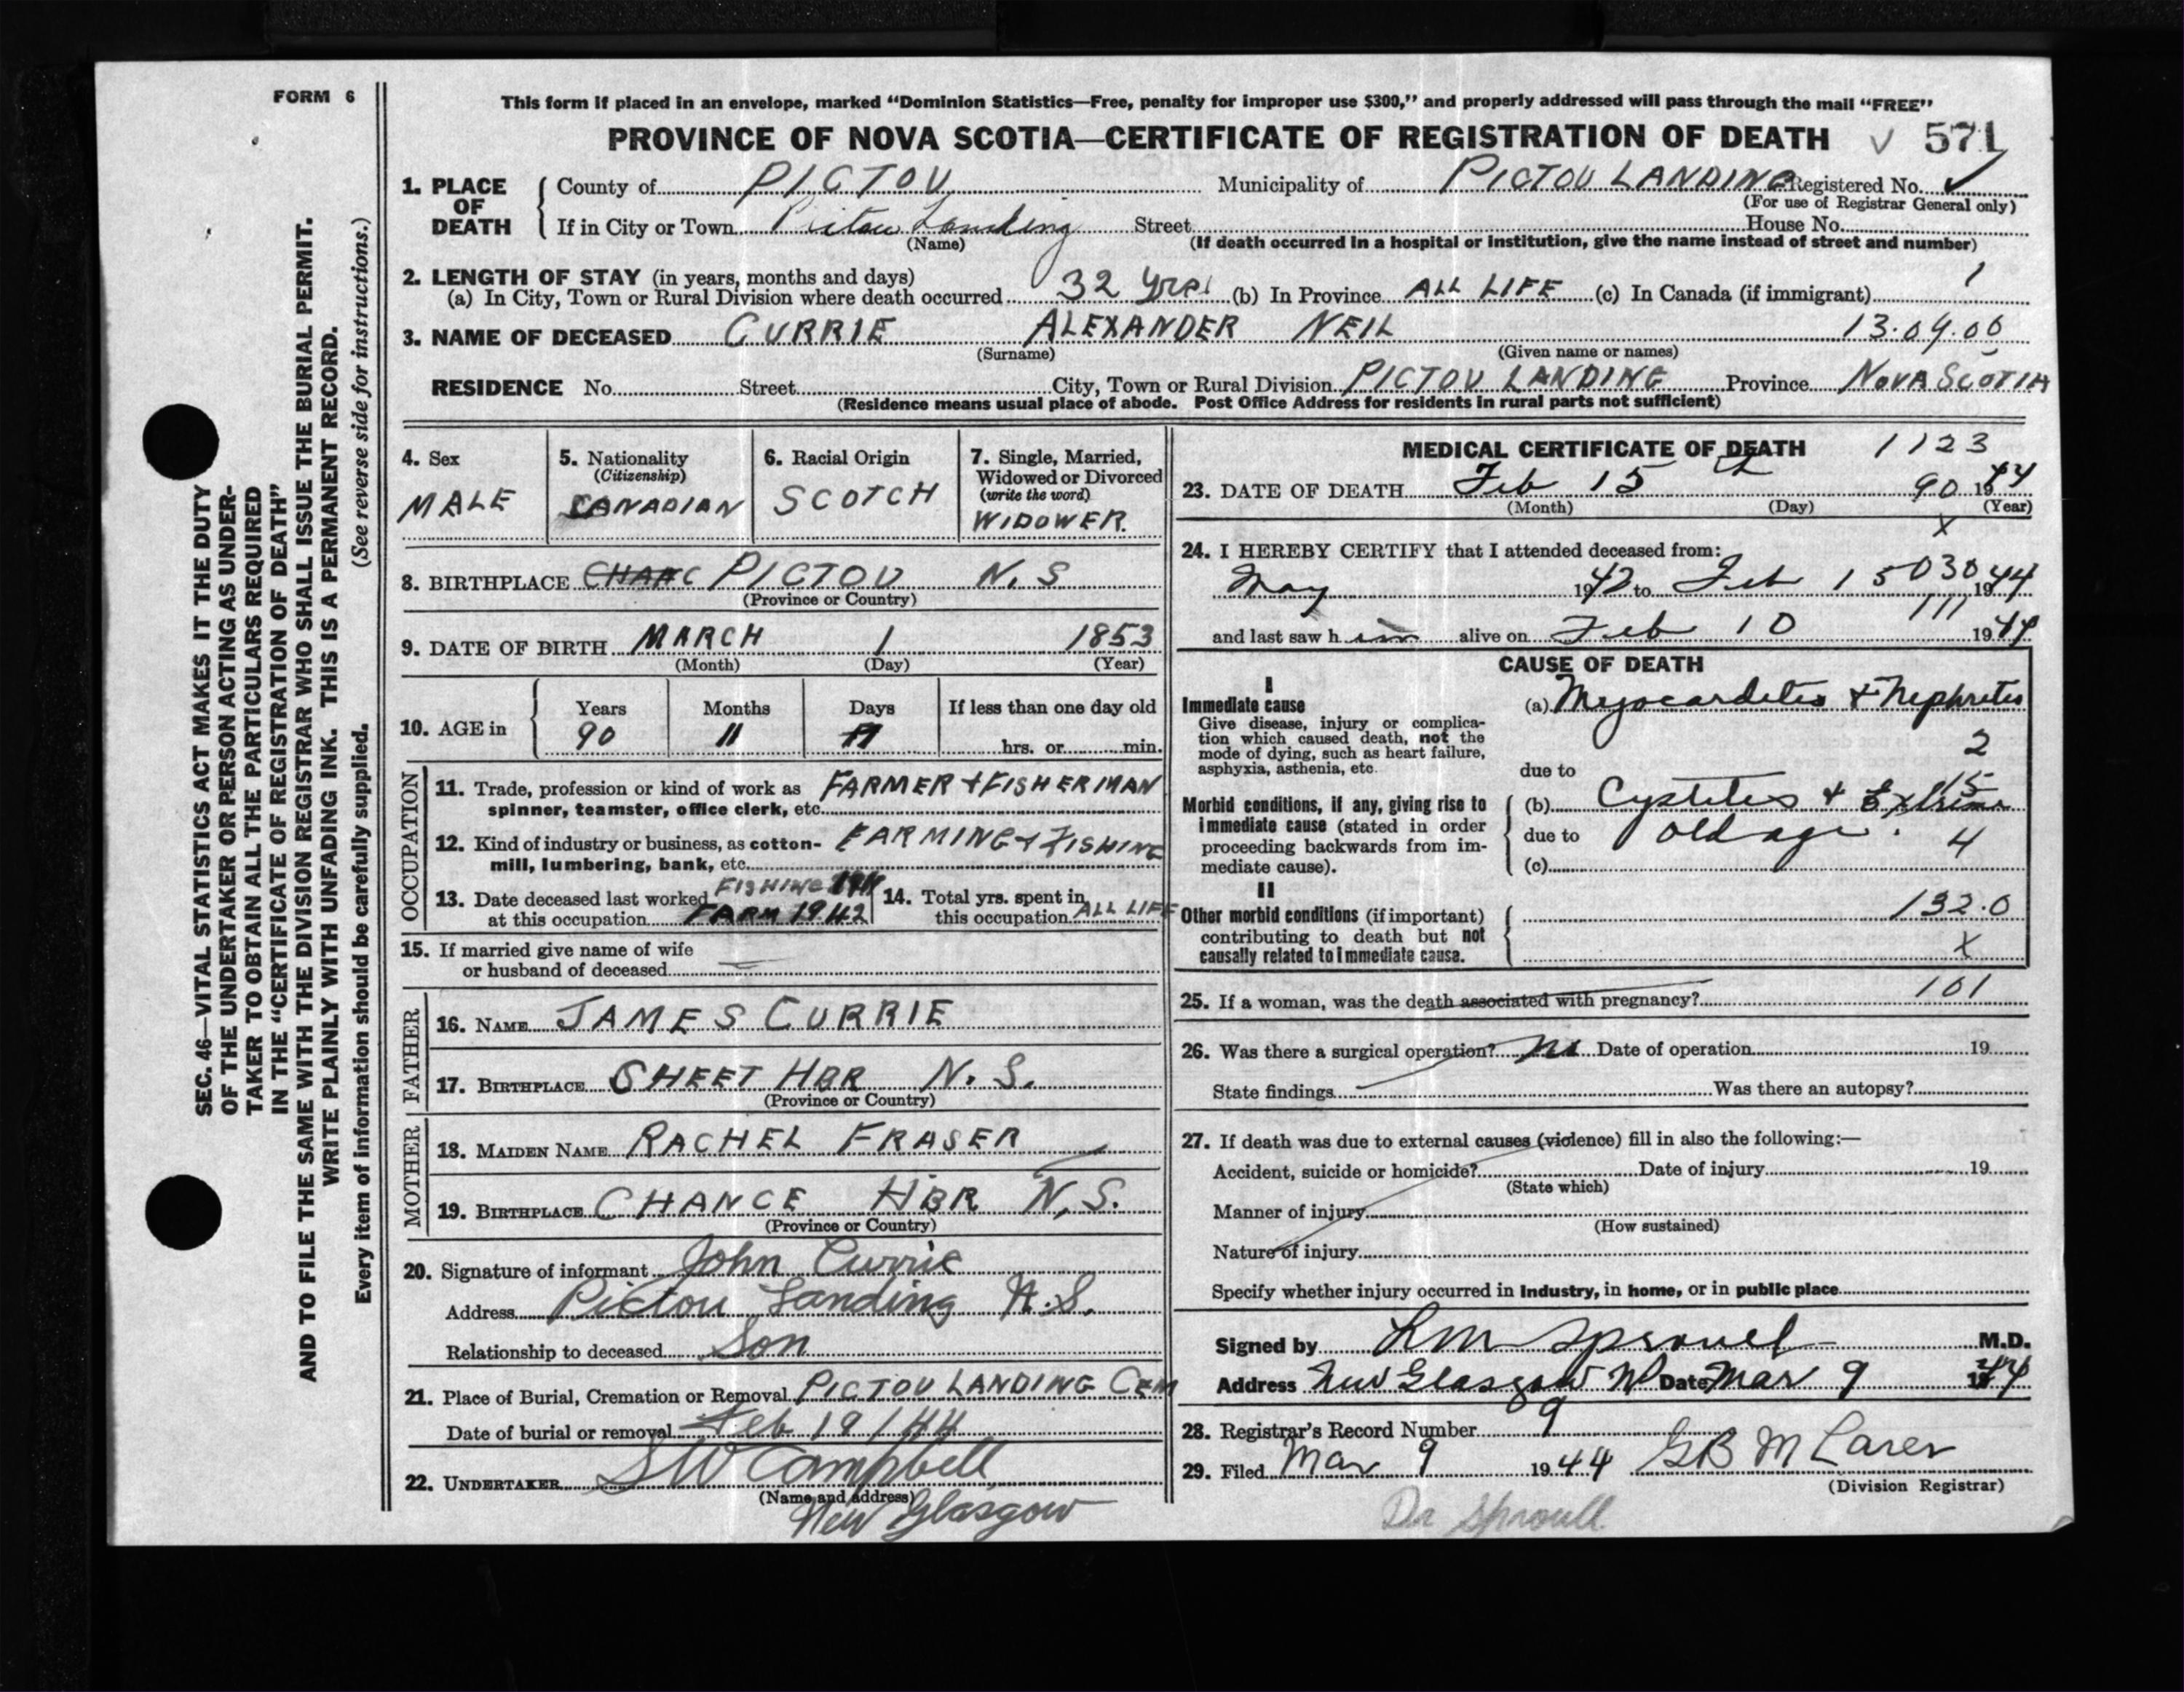 FORM 6
This form if placed in an envelope, marked “Dominion Statistics—Free, penalty for improper use $300,” and properly addressed will pass through the mail “FREE”
PROVINCE OF NOVA SCOTIA—CERTIFICATE OF REGISTRATION OF DEATH V 571
1. PLACE OF DEATH
County of PICTOU Municipality of PICTOU LANDING Registered No. ✓
(For use of Registrar General only)
If in City or Town Pictou Landing Street House No.
(Name) (If death occurred in a hospital or institution, give the name instead of street and number)
2. LENGTH OF STAY (in years, months and days) 1
(a) In City, Town or Rural Division where death occurred 32 yrs (b) In Province ALL LIFE (c) In Canada (if immigrant)
3. NAME OF DECEASED CURRIE ALEXANDER NEIL 13.09.06
(Surname) (Given name or names)
RESIDENCE No. Street City, Town or Rural Division PICTOU LANDING Province NOVA SCOTIA
(Residence means usual place of abode. Post Office Address for residents in rural parts not sufficient)
4. Sex
MALE
5. Nationality
(Citizenship)
CANADIAN
6. Racial Origin
SCOTCH
7. Single, Married,
Widowed or Divorced
(write the word)
WIDOWER.
8. BIRTHPLACE PICTOU N.S
(Province or Country)
9. DATE OF BIRTH MARCH 1 1853
(Month) (Day) (Year)
10. AGE in
Years Months Days If less than one day old
90 11 hrs. or min.
OCCUPATION
11. Trade, profession or kind of work as FARMER + FISHERMAN
spinner, teamster, office clerk, etc.
12. Kind of industry or business, as cotton- FARMING + FISHING
mill, lumbering, bank, etc.
13. Date deceased last worked FISHING
at this occupation FARM 1942
14. Total yrs. spent in
this occupation ALL LIFE
15. If married give name of wife
or husband of deceased —
FATHER
16. NAME JAMES CURRIE
17. BIRTHPLACE SHEET HBR N.S.
(Province or Country)
MOTHER
18. MAIDEN NAME RACHEL FRASER
19. BIRTHPLACE CHANCE HBR N.S.
(Province or Country)
20. Signature of informant John Currie
Address Pictou Landing N.S.
Relationship to deceased Son
21. Place of Burial, Cremation or Removal PICTOU LANDING CEM
Date of burial or removal Feb 19/44
22. UNDERTAKER SW Campbell
(Name and address)
New Glasgow
MEDICAL CERTIFICATE OF DEATH 1123
23. DATE OF DEATH Feb 15th 90 1944
(Month) (Day) (Year)
X
24. I HEREBY CERTIFY that I attended deceased from:
May 1942 to Feb 15 030 1944
111
and last saw him alive on Feb 10 1944
CAUSE OF DEATH
I
Immediate cause
Give disease, injury or complica-
tion which caused death, not the
mode of dying, such as heart failure,
asphyxia, asthenia, etc.
(a) Myocarditis + Nephritis
2
due to
15
Morbid conditions, if any, giving rise to
immediate cause (stated in order
proceeding backwards from im-
mediate cause).
(b) Cystitis + Extreme
due to old age. 4
(c)
II
Other morbid conditions (if important)
contributing to death but not
causally related to immediate cause.
132.0
X
25. If a woman, was the death associated with pregnancy? 101
26. Was there a surgical operation? No Date of operation 19
State findings Was there an autopsy?
27. If death was due to external causes (violence) fill in also the following:—
Accident, suicide or homicide? Date of injury 19
(State which)
Manner of injury
(How sustained)
Nature of injury
Specify whether injury occurred in Industry, in home, or in public place
Signed by M.D.
Address New Glasgow Date Mar 9 1944
28. Registrar's Record Number 9
29. Filed Mar 9 1944 GB McLaren
(Division Registrar)
Dr Sproull
SEC. 46—VITAL STATISTICS ACT MAKES IT THE DUTY
OF THE UNDERTAKER OR PERSON ACTING AS UNDER-
TAKER TO OBTAIN ALL THE PARTICULARS REQUIRED
IN THE “CERTIFICATE OF REGISTRATION OF DEATH”
AND TO FILE THE SAME WITH THE DIVISION REGISTRAR WHO SHALL ISSUE THE BURIAL PERMIT.
WRITE PLAINLY WITH UNFADING INK. THIS IS A PERMANENT RECORD.
Every item of information should be carefully supplied. (See reverse side for instructions.)